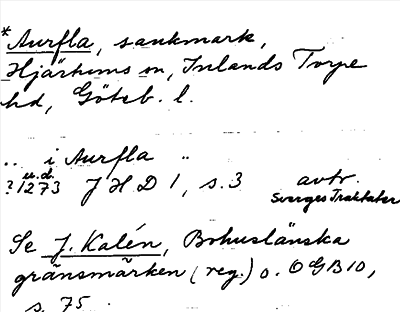 *Aurfla, sankmark,
Hjärtums sn, Inlands Torpe
hd, Göteb. l.
.. i Aurfla ..
u.d.
?1273 JHD 1, s.3 avtr.
Sveriges Traktater
Se J. Kalén, Bohuslänska
gränsmärken (reg.) o. OGB10,
s. 75.